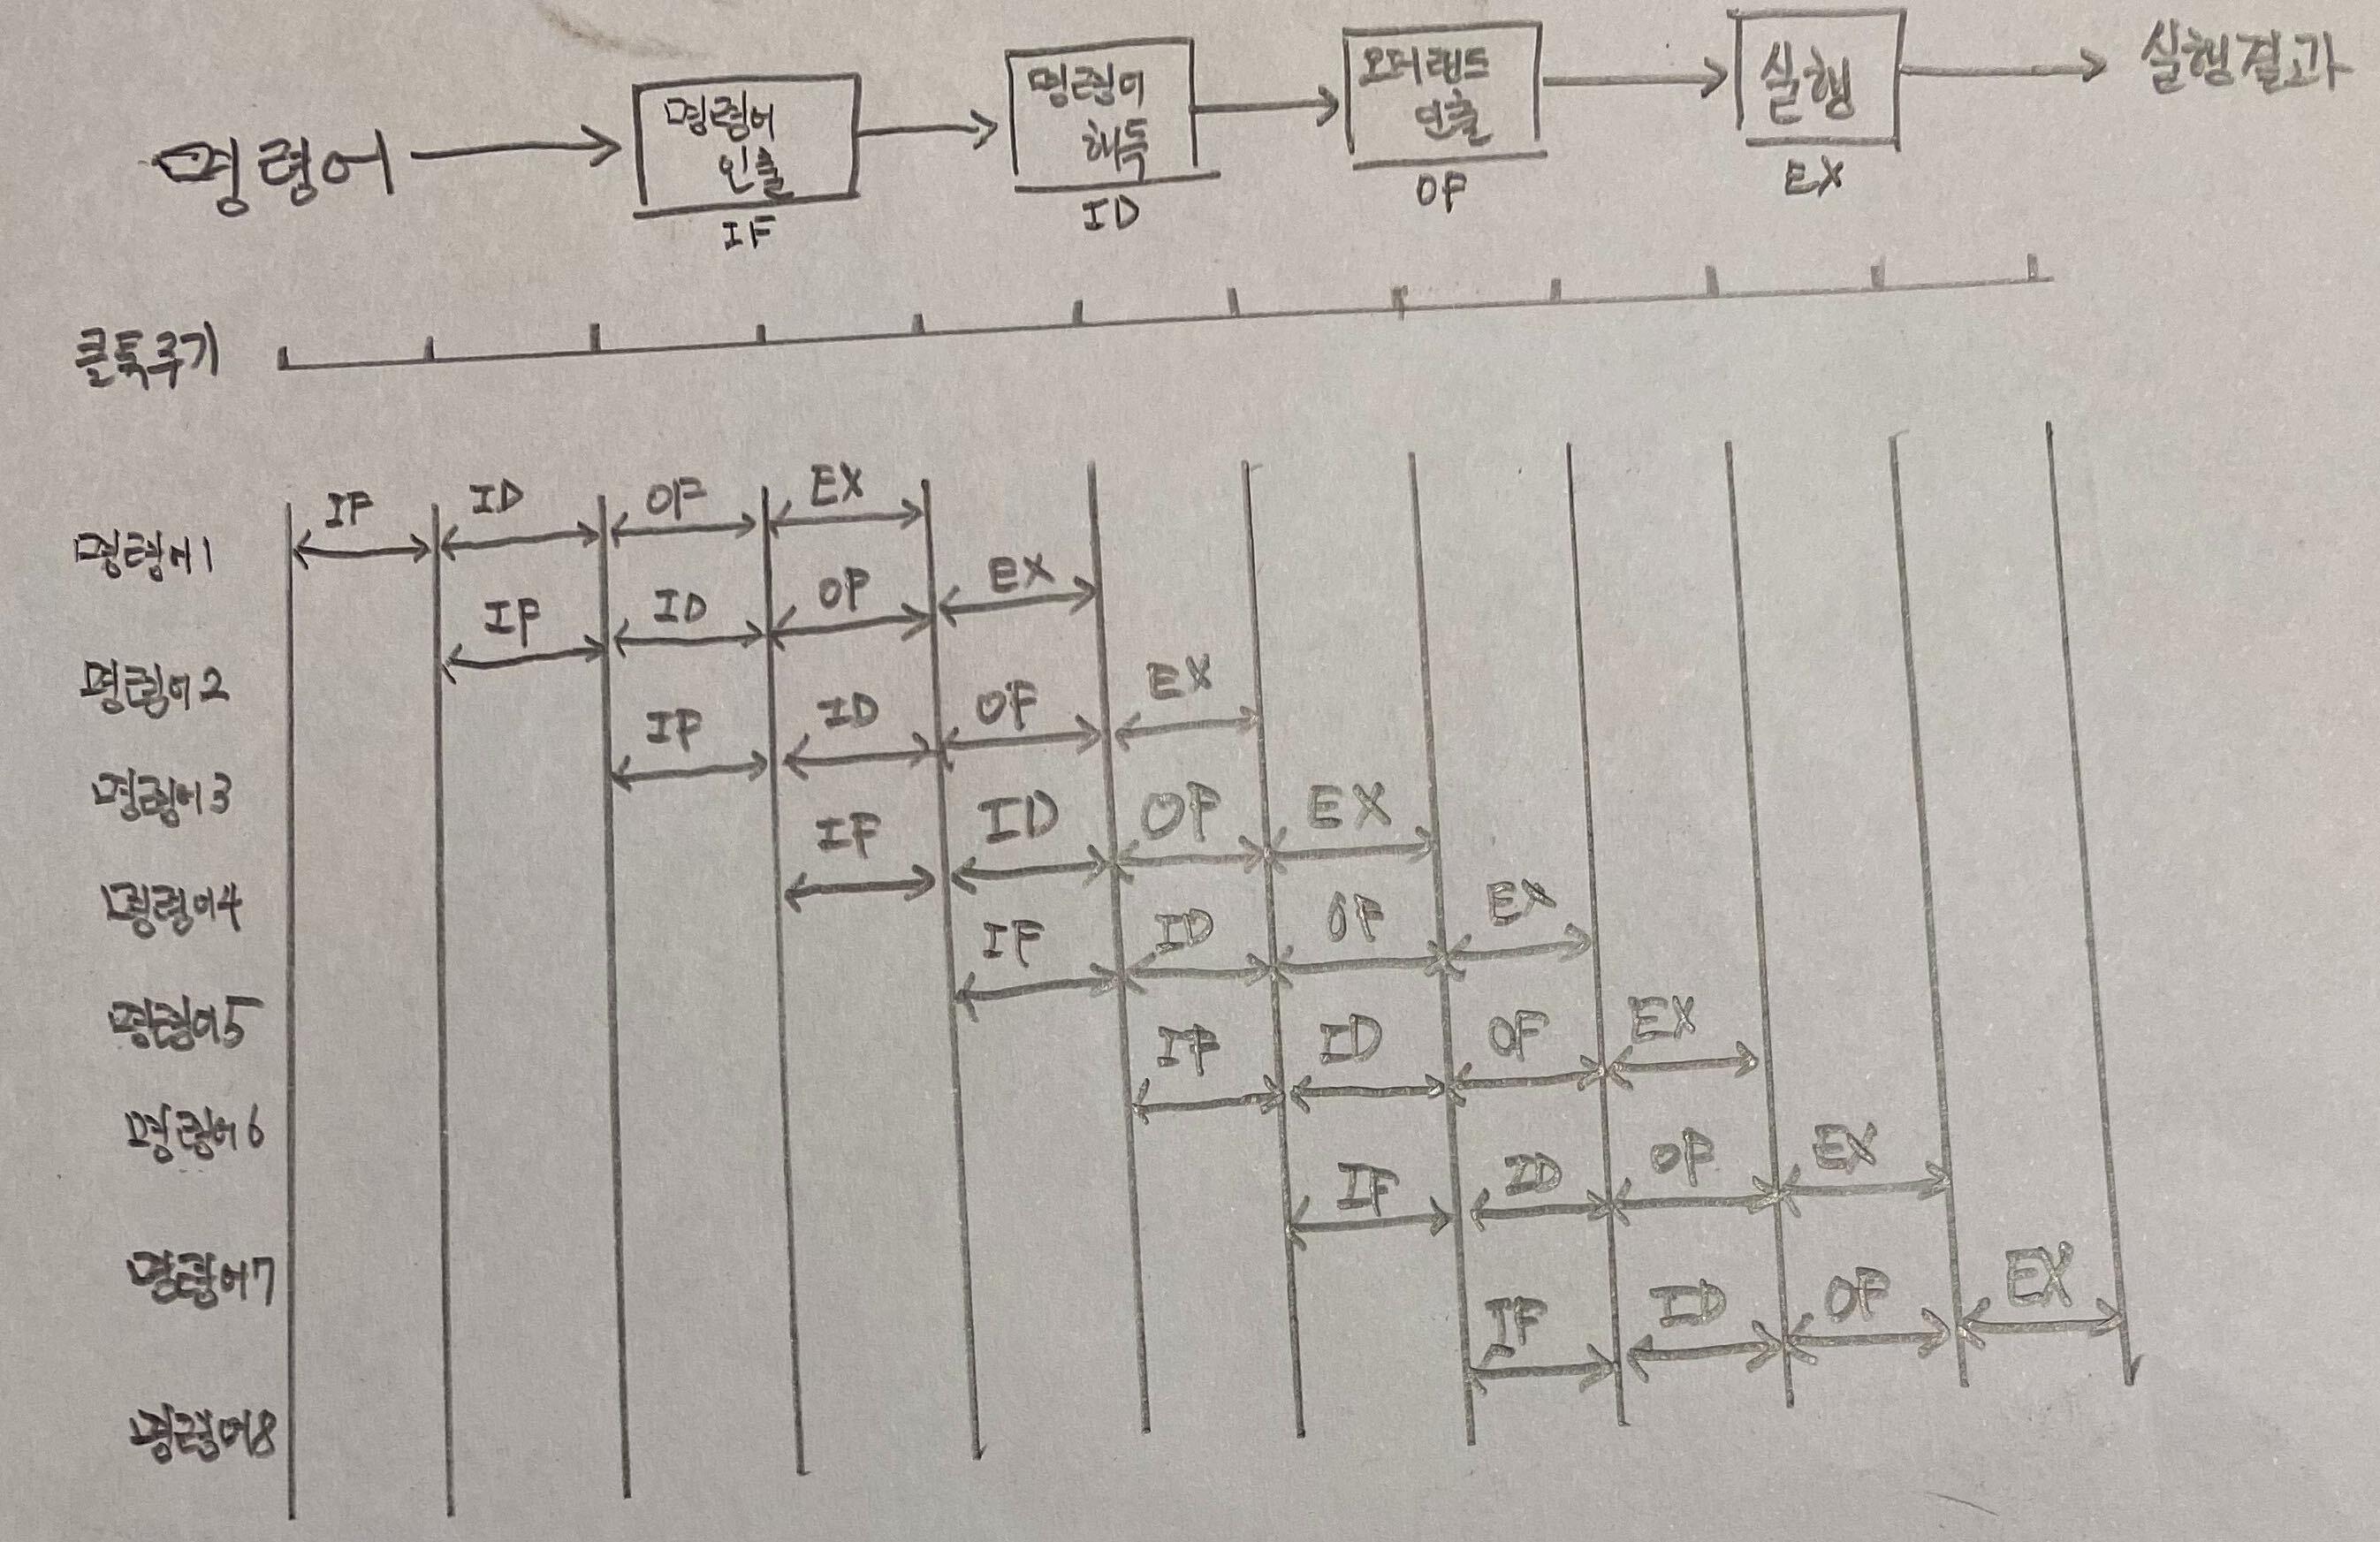 명령어 명령어 인출 명령어 해독 오퍼랜드 인출 실행 실행결과
IF ID OF EX
클록주기
명령어1 IF ID OF EX
명령어2 IF ID OF EX
명령어3 IF ID OF EX
명령어4 IF ID OF EX
명령어5 IF ID OF EX
명령어6 IF ID OF EX
명령어7 IF ID OF EX
명령어8 IF ID OF EX